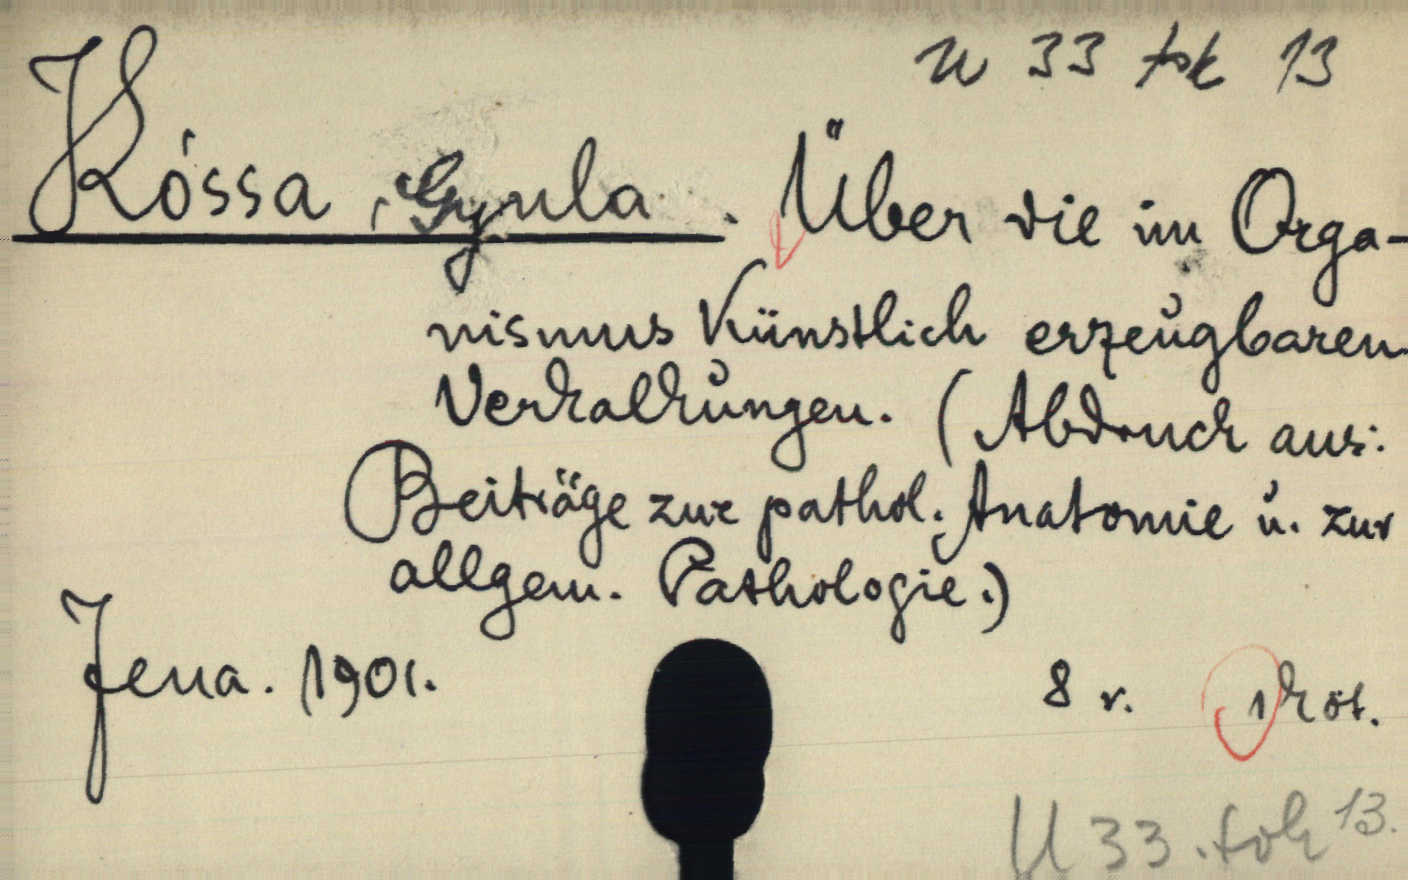 U 33 tok 13
Kóssa, Gyula. Über die im Orga-
nismus Künstlich erzeugbaren
Verkalkungen. (Abdruck aus:
Beiträge zur pathol. Anatomie u. zur
allgem. Pathologie.)
Jena. 1901.
8 r. 1 köt.
U 33. tok 13.